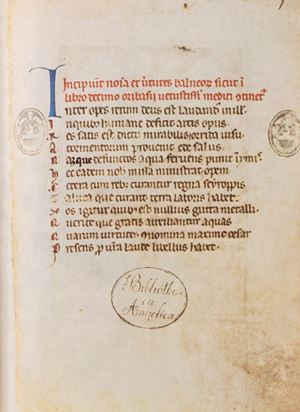 Incipiũt noĩa et ũtutes balneoʀ sicut ĩ
libro decimo oribasij uetustissimi medici ↄtinetʳ
Inter opes reʀum deus est laudandus ĩ ill'
Inquibus humane deficit artis opus
Res satis est dictu mirabilis orrida uisu
Tormentorum prouenit ede salus
Naque defunctos aqua feruens punit ĩ ymis
Hec eadem nobis missa ministrat opem
Cetera cum rebus curantur regna syroppis
Balnea que curant terra laboris habet
Hos igitur quibus est nullius gutta metalli
Querite que gratis auxiliantur aquas
Quarum uirtutes nomina maxime cesar
Presens laude libellus habet
Bibliothe
ca
Angelica